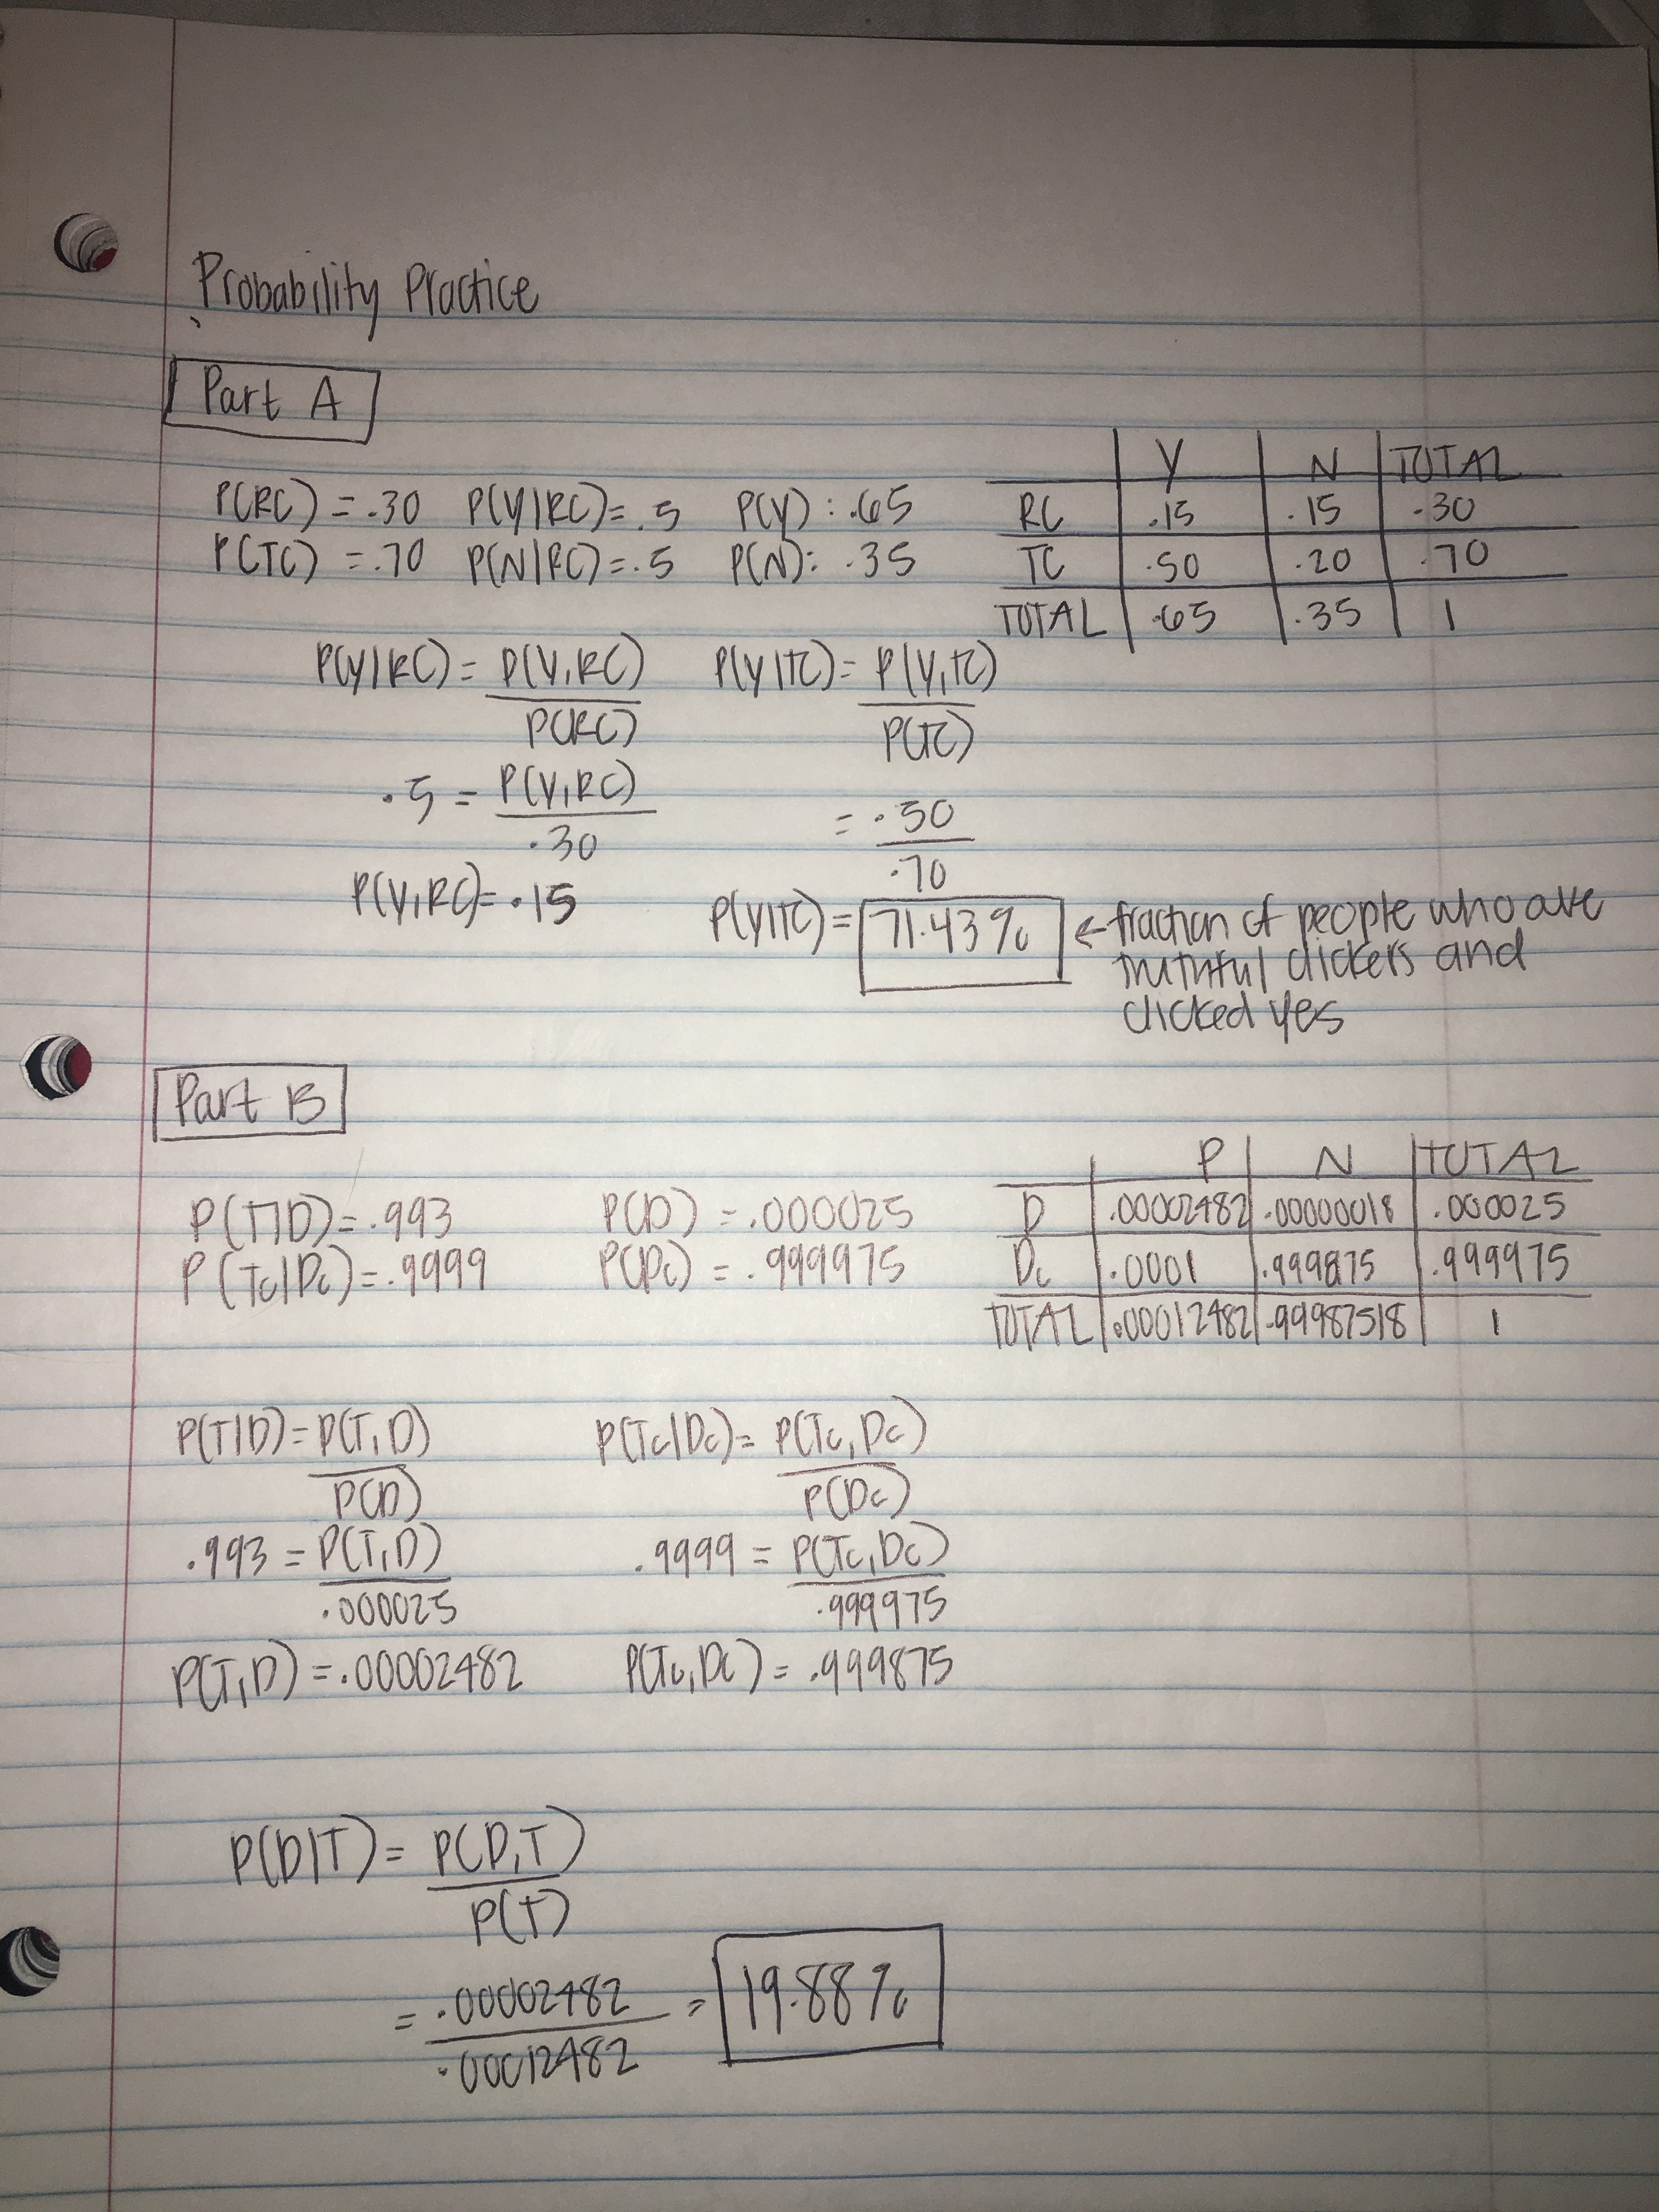 Probability Practice
Part A
P(RC) = .30 P(Y|RC)= .5 P(Y) : .65
P(TC) = .70 P(N|RC)= .5 P(N): .35
Y N TOTAL
RC .15 .15 .30
TC .50 .20 .70
TOTAL .65 .35 1
P(Y|RC) = P(Y,RC)
P(RC)
.5 = P(Y,RC)
.30
P(Y,RC)= .15
P(Y|TC)= P(Y,TC)
P(TC)
= .50
.70
P(Y|TC)= 71.43% ← fraction of people who are
truthful clickers and
clicked yes
Part B
P(T|D)= .993 P(D) = .000025
P(Tc|Dc)= .9999 P(Dc) = .999975
P N TOTAL
D .00002482 .00000018 .000025
Dc .0001 .999875 .999975
TOTAL .00012482 .99987518 1
P(T|D)= P(T,D)
P(D)
.993 = P(T,D)
.000025
P(T,D) = .00002482
P(Tc|Dc)= P(Tc,Dc)
P(Dc)
.9999 = P(Tc,Dc)
.999975
P(Tc,Dc) = .999875
P(D|T)= P(D,T)
P(T)
= .00002482 = 19.88%
.00012482